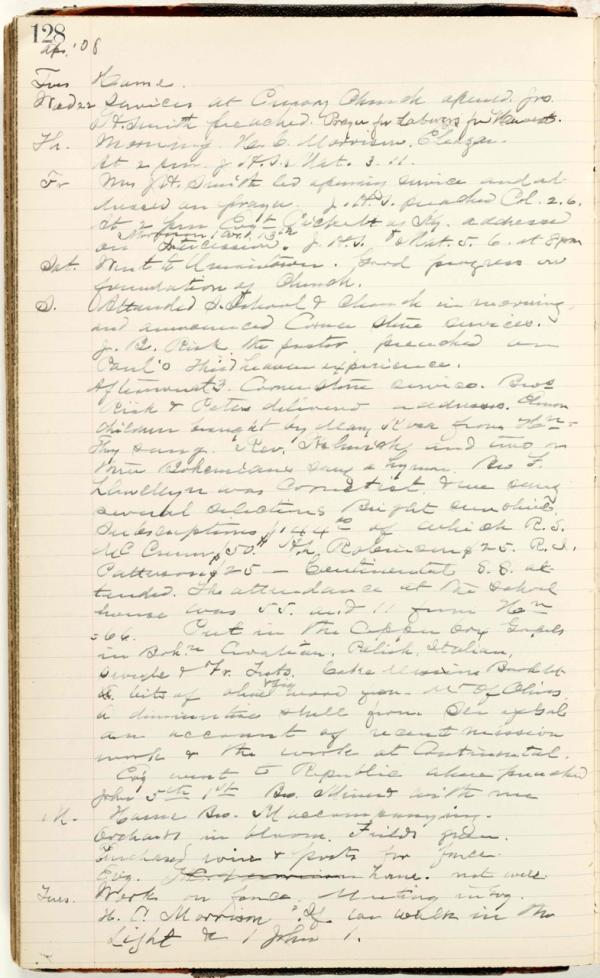 128
Apr. '08
Tues Home.
Wednes Services at Church opened. Jno.
G.H. Smith preached. Prayer for Laborers for Harvest.
Th. Morning. H. C. Morrison,
At 2 pm. J. H. S. Mat. 3.11.
Fr Mrs J H. Smith led opening service and ad-
dressed on prayer. J. H. S. preached Col. 2.6.
At 2 pm addressed
on Intercession. J. H. S. Mat. 5. 6. at 8 pm
Sat. Went to Uniontown. Good progress on
foundation of Church.
S. Attended S. School & Church in morning,
and announced Corner Stone services.
J. B. Risk the pastor, preached on
Paul's third heaven experience.
Afternoon at 3. Corner Stone service. Bros
Risk & Peters delivered addresses.
children brought by Mary from
sang. Rev. and two or
three Bohemians sang a hymn. Bro F.
Llewellyn was Cornetist, & we sang
several selections Bright sunshine.
Subscriptions $144.00 of which R. S.
McCrum $50. Robinson $25. R. I.
Patterson $25 — Continental S. S. at-
tended. The attendance at the school
house was 55. and 11 from
= 66. Put in the Copper box Gospels
in Bohn Croatian, Polish, Italian,
& Fr. Tests. Mission Booklet
bits of olive wood from Mt of Olives
A diminutive shell from Sea of Gal
an account of recent mission
work & the work at Continental.
Evg went to Republic where preached
John 5th 1st Bro. Miner with me
M. Home Bro. M accompanying.
Orchards in bloom. Fields green.
Purchased wire & posts for fence.
Evg. home. not well.
Tues. Work on fence. Meeting in Evg.
H. C. Morrison "If we walk in the
Light &c 1 John 1.